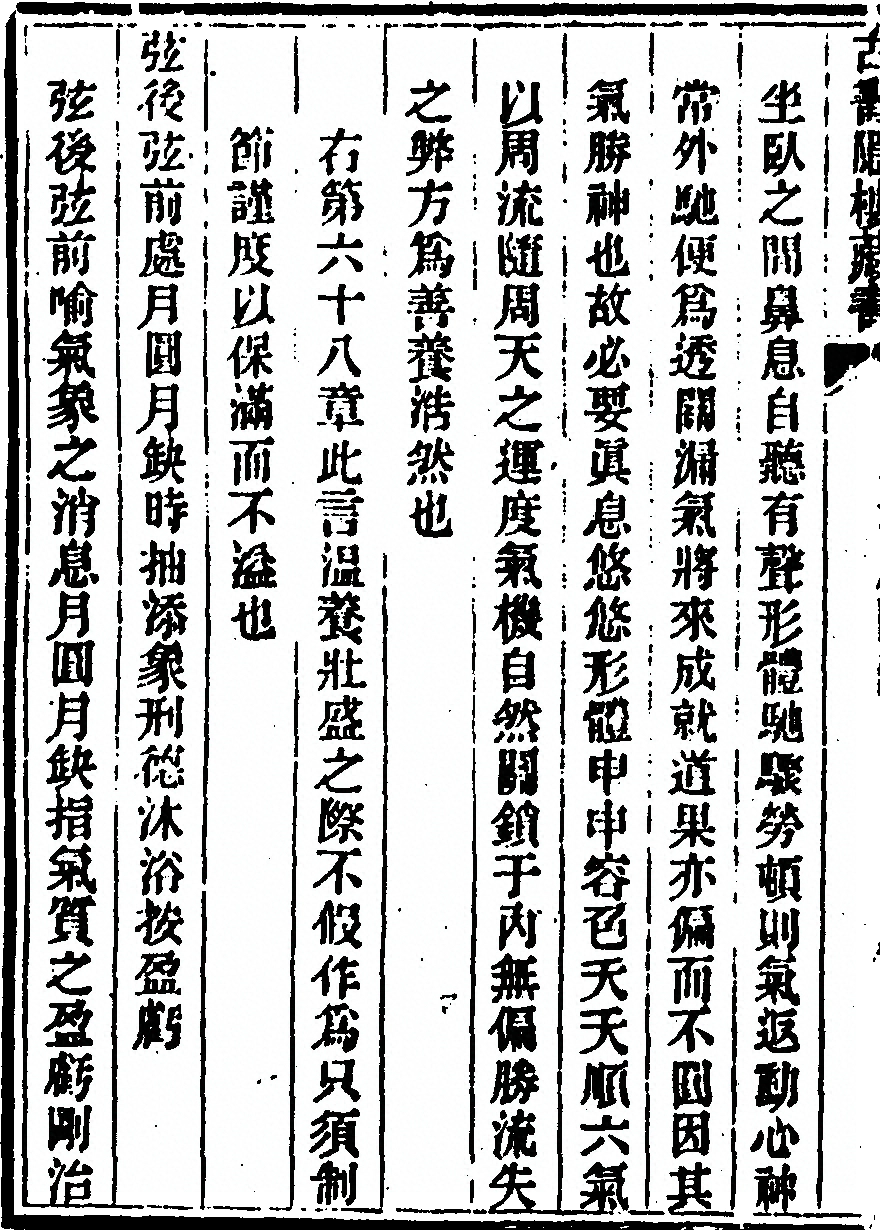 古書隱樓藏書
坐臥之間鼻息自聽有聲形體馳驟勞頓則氣返動心神
常外馳便為透關漏氣將來成就道果亦偏而不圓因其
氣勝神也故必要眞息悠悠形體申申容色夭夭順六氣
以周流隨周天之運度氣機自然關鎖于內無偏勝流失
之弊方為善養浩然也
右第六十八章此言溫養壯盛之際不假作為只須制
節謹度以保滿而不溢也
弦後弦前處月圓月缺時抽添象刑德沐浴按盈虧
弦後弦前喻氣象之消息月圓月缺指氣質之盈虧剛治